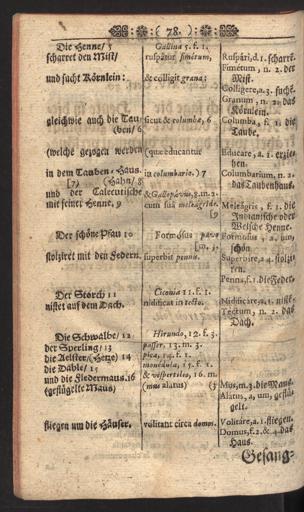 ( 78. )
Die Henne/ 5
scharret den Mist/
und sucht Körnlein:
gleichwie auch die Tau-
ben/ 6
(welche gezogen werden
in dem Tauben-Haus.
[7) (Hahn/ 8
und der Calecutische
mit seiner Henne, 9
Der schöne Pfau 10
stolziret mit den Federn.
Der Storch 11
nistet auf dem Dach.
Die Schwalbe/ 12
der Sperling/ 13
die Aelster/ (Hetze) 14
die Dable/ 15
und die Fledermaus. 16
(geflügelte Maus)
fliegen um die Häuser.
Gallina 5. f. 1.
ruspatur fimetum,
& colligit grana;
sicut & columbæ, 6
(quæ educantur
in columbario. ) 7
& Gallopavus, 8. m. 2.
cum suâ meleagride.
[9
Formosus pavo
[10. 3.
superbit pennis.
Ciconia 11. f. 1.
nidificat in tecto.
Hirundo, 12. f. 3.
passer. 13. m. 3.
pica, 14. f. 1.
monedula, 15. f. 1.
& vespertilio, 16. m.
(mus alatus) (3
volitant circa domos.
Ruspári, d. 1. scharrē.
Fimétum, n. 2. der
Mist.
Colligere, a. 3. suchē.
Granum, n. 2. das
Körnlein.
Columba, f. 1. die
Taube,
Educare, a. 1. erzie-
hen.
Columbarium, n. 2.
das Taubenhaus.
Meleägris, f. 3. die
Indianische oder
Welsche Henne.
Formosus, a, um,
schön
Superbire, a. 4. stolzi-
ren.
Penna, f. 1. die Feder.
Nidificáre, a. 1. nistē.
Tectum, n. 2. das
Dach.
Mus, m. 3. die Maus.
Alátus, a, um, geflü-
gelt.
Volitáre, a. 1. fliegen.
Domus, f. 2. & 4. das
Haus.
Gesang-